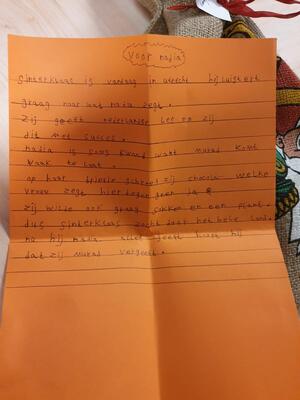 voor nadia
Sinterklaas is vandaag in utrecht hij luistert
graag naar wat nadia zegt.
Zij geeft nederlandse les en zij
dit met succes.
nadia is soms kwaad want murad komt
vaak te laat.
op haar schreef zij chocola welke
vrouw zegt hier tegen geen ja
zij wilde ook graag sokken en een plant.
dus sinterklaas zocht door het hele land.
nu hij nadia alles geeft hoopt hij
dat zij murad vergeeft.